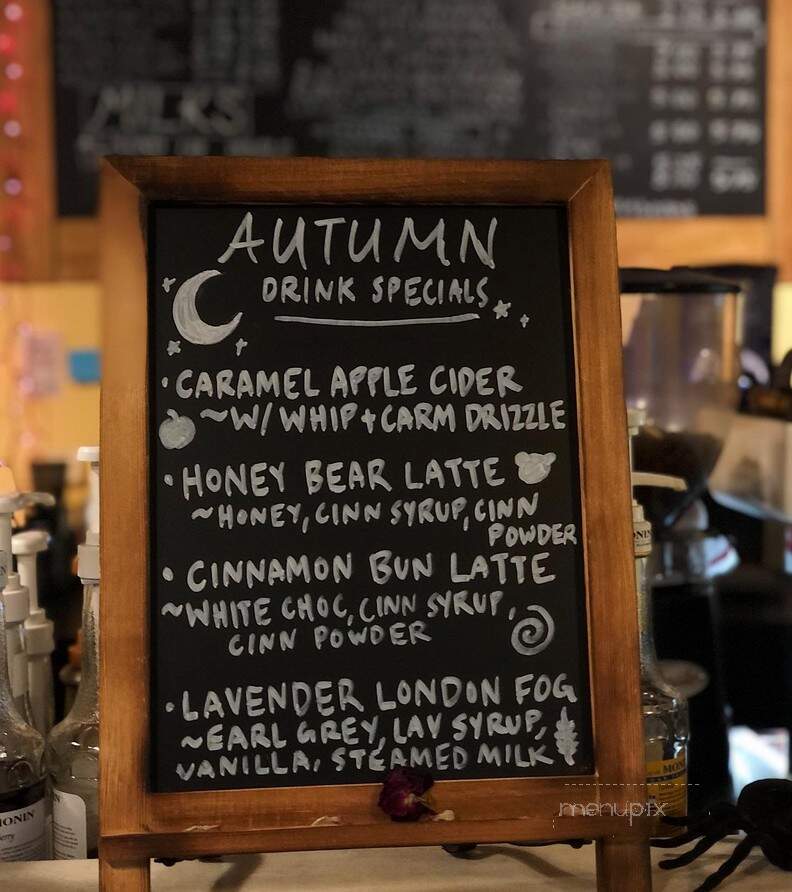 MILKS
AUTUMN
DRINK SPECIALS
• CARAMEL APPLE CIDER
~W/ WHIP + CARM DRIZZLE
• HONEY BEAR LATTE
~HONEY, CINN SYRUP, CINN
POWDER
• CINNAMON BUN LATTE
~WHITE CHOC, CINN SYRUP,
CINN POWDER
• LAVENDER LONDON FOG
~EARL GREY, LAV SYRUP,
VANILLA, STEAMED MILK
menupix